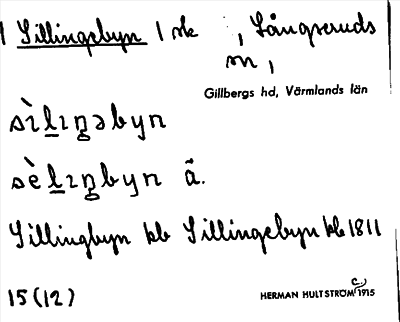 1 Sillingebyn 1 sk , Långseruds
sn,
Gillbergs hd, Värmlands län
sìlıŋəbyn
sèlıŋbyn ã.
Sillingbyn kb Sillingebyn kb 1811
15 (12) HERMAN HULTSTRÖM c. 1915